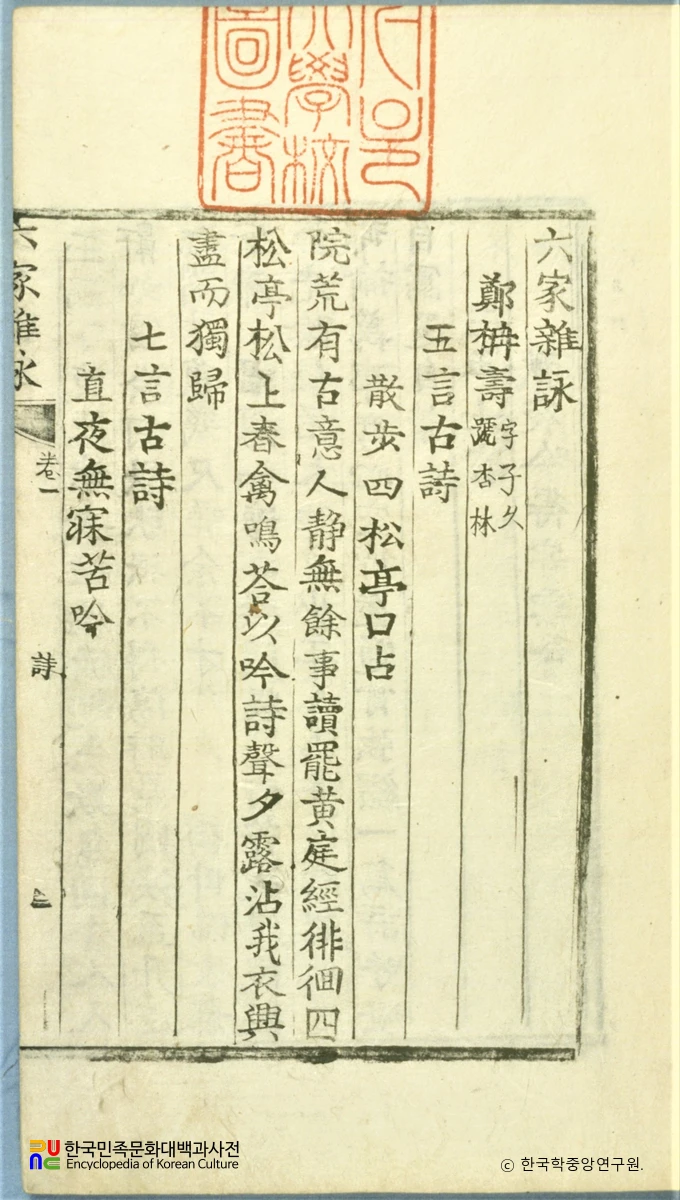 六家雜詠
鄭柟壽 字子久 號杏林
五言古詩
散步四松亭口占
院荒有古意人静無餘事讀罷黄庭經徘徊四
松亭松上春禽鳴荅以吟詩聲夕露沾我衣興
盡而獨歸
七言古詩
直夜無寐苦吟
六家雜詠 卷一 詩
圖書
學校
한국민족문화대백과사전
Encyclopedia of Korean Culture
© 한국학중앙연구원.